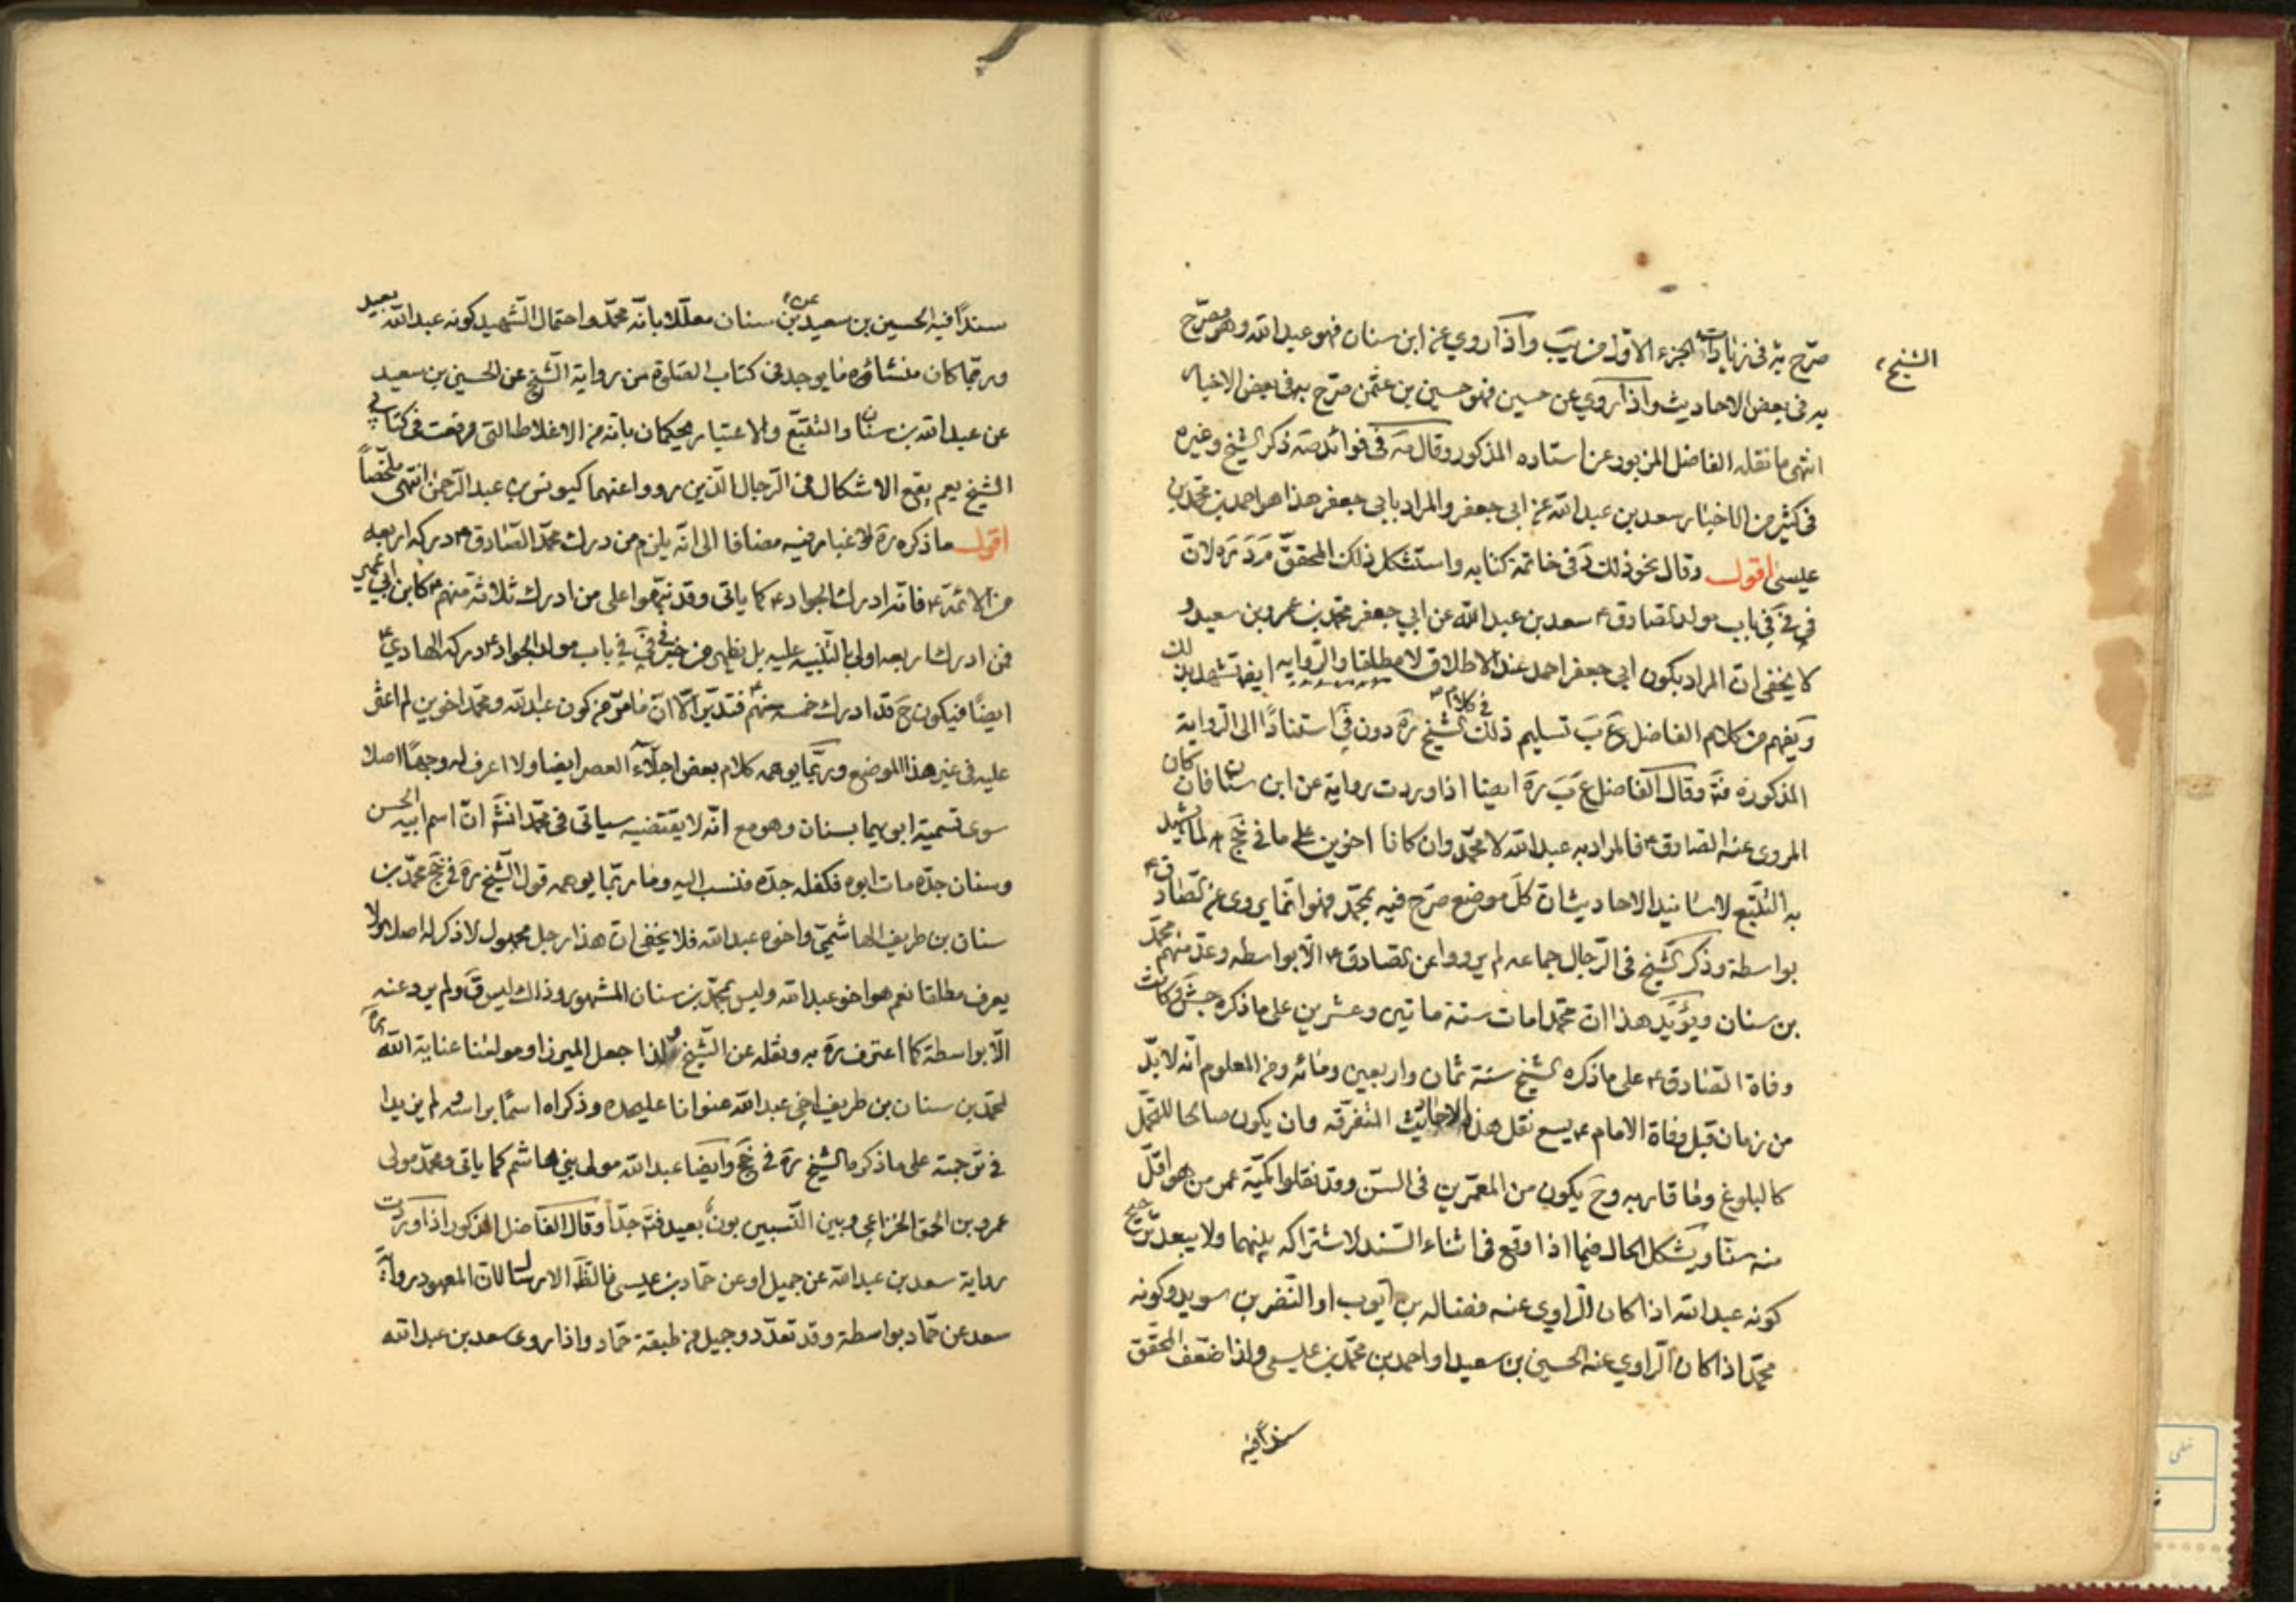 الشيخ
صرّح به في زيادات الجزء الاوّل من يب واذا روي عن ابن سنان فهو عبد الله وهو مصرّح
به في بعض الاحاديث واذا روي عن حسين فهو حسين بن عثمن صرّح به في بعض الاخبار
انتهى ما نقله الفاضل المزبور عن استاده المذكور وقال مة في فوائد صه ذكر الشيخ وغيره
في كثير من الاخبار سعد بن عبد الله عن ابي جعفر والمراد بابي جعفر هذا هو احمد بن محمّد بن
عيسى اقول وقال نحو ذلك د في خاتمة كتابه واستشكل ذلك المحقق مرد ره لانّ
في في في باب مولد الصادق ع سعد بن عبد الله عن ابي جعفر محمّد بن عمر بن سعيد و
لا يخفى انّ المراد بكون ابي جعفر احمد عند الاطلاق لا مطلقا والرواية ايضا تشهد بذلك
ويفهم من كلام الفاضل ع ب تسليم ذلك في كلام الشيخ ره دون في استنادًا الى الرواية
المذكورة فتة وقال الفاضل ع ب ره ايضا اذا وردت رواية عن ابن سنان فان كان
المروي عنه الصادق ع فالمراد به عبد الله لا محمّد وان كانا اخوين على ما في جخ لما يشهد
به التتبّع لاسانيد الاحاديث انّ كلّ موضع صرّح فيه بمحمّد فهو انّما يروي عن الصادق ع
بواسطة وذكر الشيخ في الرّجال جماعه لم يرووا عن الصادق ع الّا بواسطه وعدّ منهم محمّد
بن سنان ويؤيّد هذا انّ محمّدا مات سنة مأتين وعشرين على ما ذكره جش وكانت
وفاة الصّادق ع على ما ذكره الشيخ سنة ثمان واربعين ومائه ومن المعلوم انّه لا بدّ
من زمان قبل وفاة الامام ع يسع نقل هذه الاحاديث المتفرّقه وان يكون صالحا للتحمّل
كالبلوغ وما قاربه وح يكون من المعمّرين في السنّ وقد نقلوا كميّة عمر من هو اقلّ
منه سنّا ويشكل الحال فيما اذا وقع في اثناء السّند لاشتراكه بينهما ولا يبعد ترجيح
كونه عبد الله اذا كان الراوي عنه فضاله بن ايّوب او النّضر بن سويد وكونه
محمّدا اذا كان الراوي عنه الحسين بن سعيد او احمد بن محمّد بن عيسى واذا ضعّف المحقّق
سندًا فيه
سندًا فيه الحسين بن سعيد عن ابن سنان معلّلا بانّه محمّد واحتمال الشّهيد كونه عبد الله بعيد
وربما كان منشاؤه ما يوجد في كتاب الصّلوة من رواية الشّيخ عن الحسين بن سعيد
عن عبد الله بن سنان والتتبّع والاعتبار يحكمان بانّه من الاغلاط التي وقعت في كتابي
الشيخ نعم يقع الاشكال في الرّجال الّذين رووا عنهما كيونس بن عبد الرّحمن انتهى ملخّصاً
اقول ما ذكره ره لا غبار فيه مضافا الى انّه يلزم من درك محمّد الصّادق ع دركه اربعه
من الائمّة ع فانّه ادرك الجواد ع كما ياتى وقد نبّهوا على من ادرك ثلاثة منهم ع كابن ابي عمير
فمن ادرك اربعه اولى بالتّنبيه عليه بل يظهر من خبر في في باب مولد الجواد ع دركه الهادي ع
ايضًا فيكون ح قد ادرك خمسه منهم ع فتدبّر الّا انّ ما مرّ من كون عبد الله ومحمّد اخوين لم اعثر
عليه في غير هذا الموضع وربّما يوهمه كلام بعض اجلّاء العصر ايضا ولا اعرف له وجهًا اصلا
سوى تسمية ابويهما بسنان وهو مع انّه لا يقتضيه سياتي في محمّد انش انّ اسم ابيه الحسن
وسنان جدّه مات ابوه فكفله جدّه فنسب اليه وما ربّما يوهمه قول الشّيخ ره في جخ محمّد بن
سنان بن طريف الهاشميّ واخوه عبد الله فلا يخفى انّ هذا رجل مجهول لا ذكر له اصلا ولا
يعرف مطلقا نعم هو اخو عبد الله وليس بمحمّد بن سنان المشهور وذاك ليس ق ولم يرو عنه
الّا بواسطة كما اعترف ره به ونقله عن الشّيخ ولذا جعل الميرزا ومولانا عناية الله ره
لمحمّد بن سنان بن طريف اخي عبد الله عنوانا عليحده وذكراه اسمًا براسه لم يزيدا
في ترجمته على ما ذكره الشيخ ره في جخ وايضا عبد الله مولى بني هاشم كما ياتى ومحمّد مولى
عمرو بن الحمق الخزاعي وبين النّسبين بون بعيد فتة جدّا وقال الفاضل المذكور اذا وردت
رواية سعد بن عبد الله عن جميل او عن حمّاد بن عيسى فالظّ الارسال لانّ المعهود رواية
سعد عن حمّاد بواسطة وقد تعدّد وجميل من طبقة حمّاد واذا روى سعد بن عبد الله